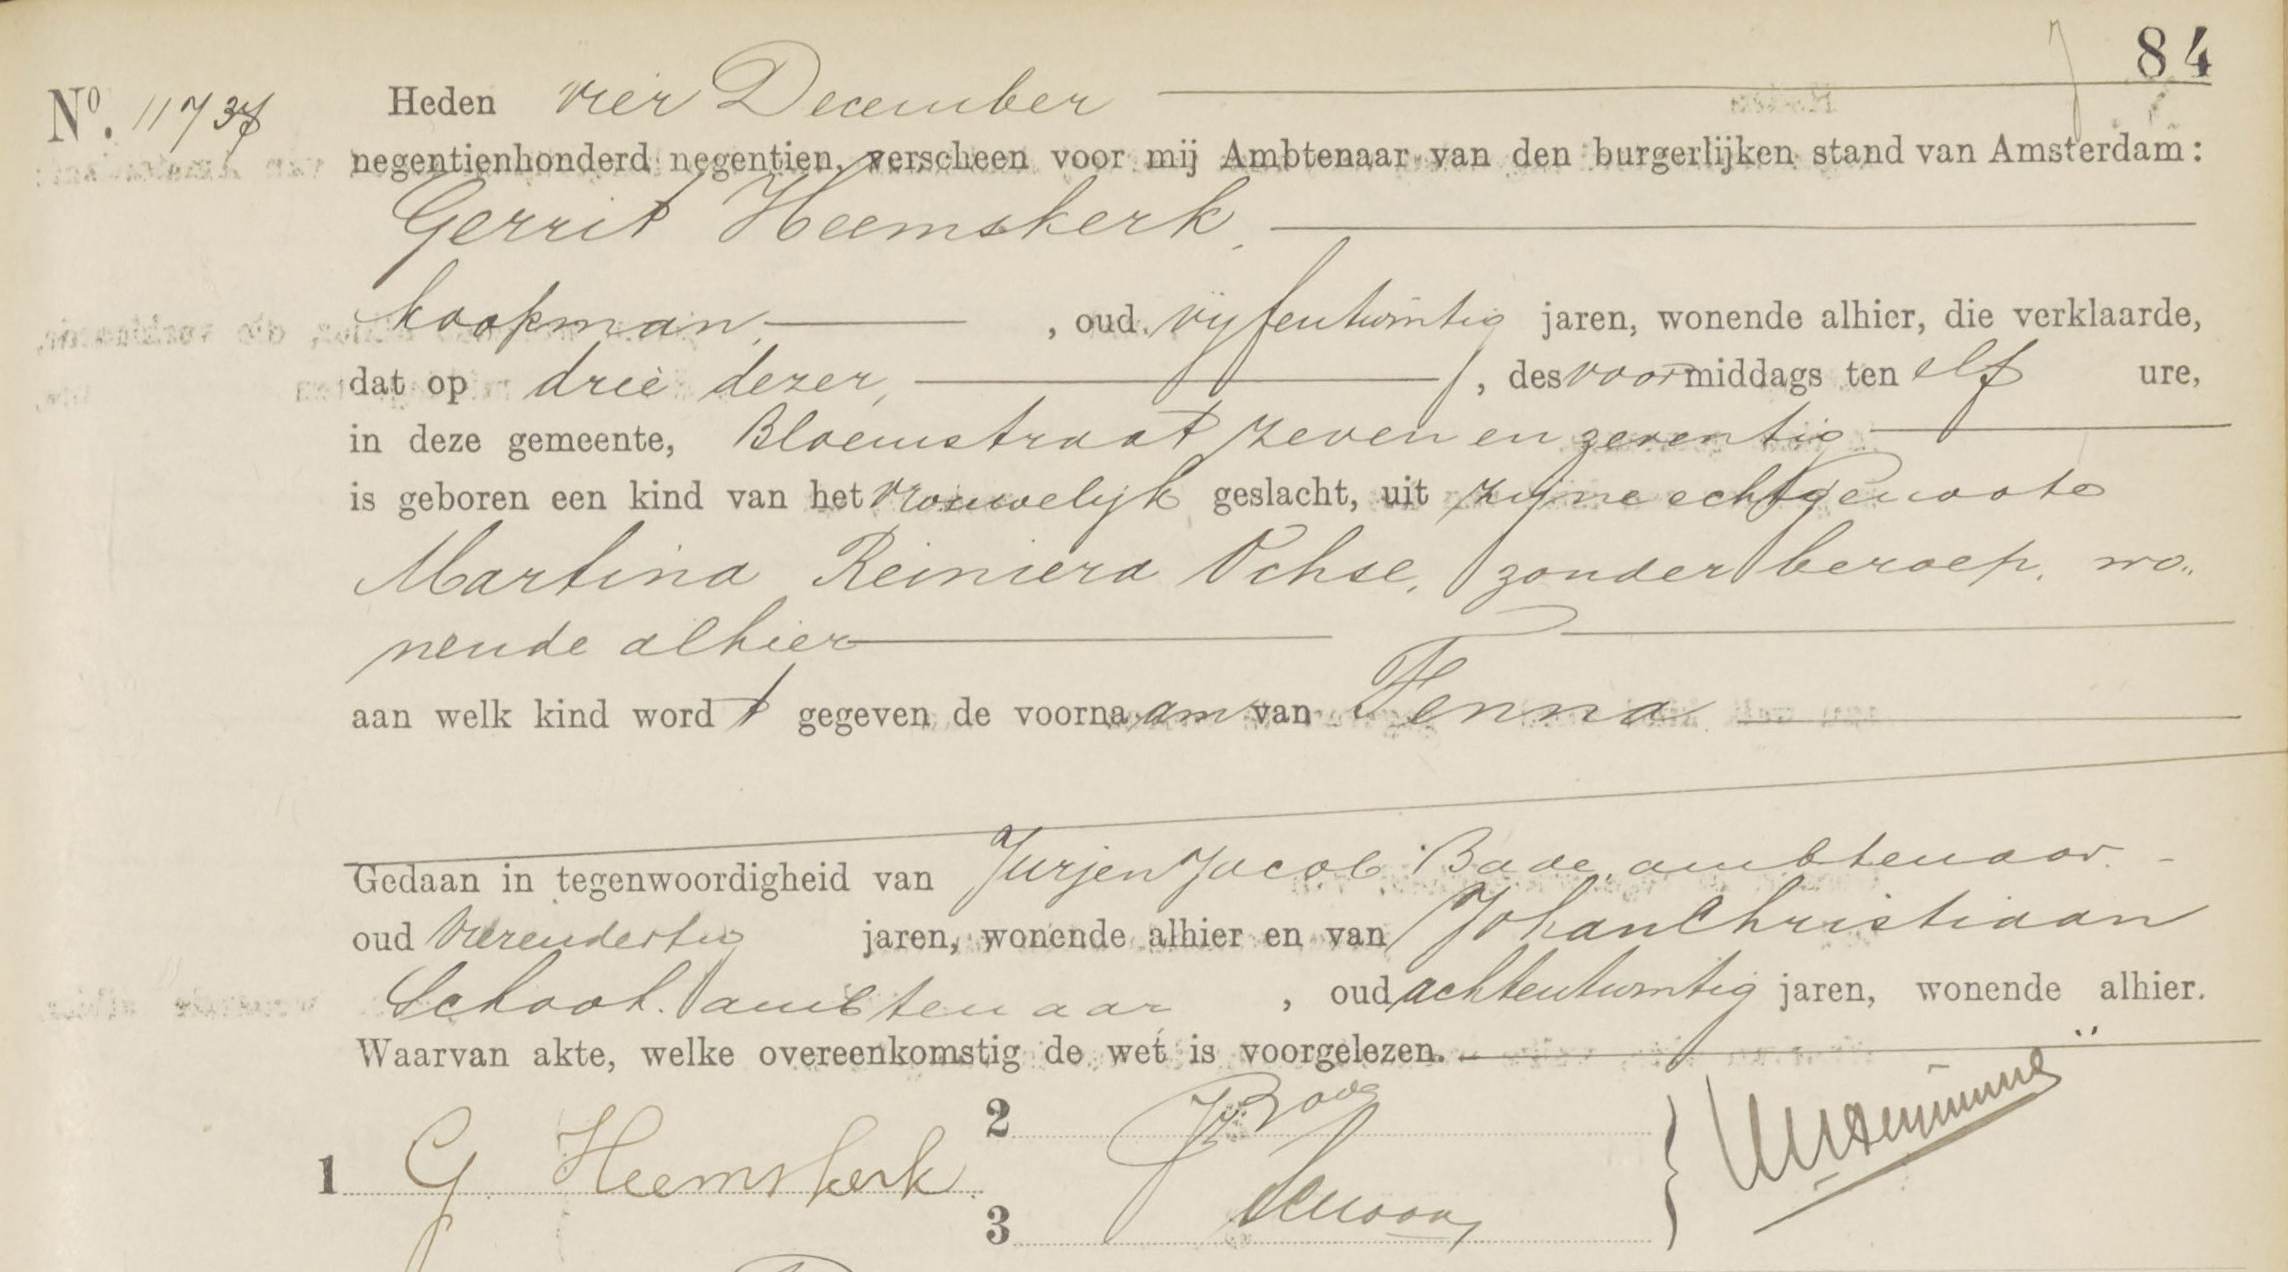 84
Nº. 11737 Heden vier December
negentienhonderd negentien, verscheen voor mij Ambtenaar van den burgerlijken stand van Amsterdam:
Gerrit Heemskerk,
koopman, , oud vijfentwintig jaren, wonende alhier, die verklaarde,
dat op drie dezer, , des voormiddags ten elf ure,
in deze gemeente, Bloemstraat zeven en zeventig
is geboren een kind van het vrouwelijk geslacht, uit zijne echtgenoote
Martina Reiniera Ochse, zonder beroep, wo„
nende alhier
aan welk kind wordt gegeven de voornaam van Fenna
Gedaan in tegenwoordigheid van Jurjen Jacob Bade, ambtenaar
oud vierendertig jaren, wonende alhier en van Johan Christiaan
School, ambtenaar , oud achtentwintig jaren, wonende alhier.
Waarvan akte, welke overeenkomstig de wet is voorgelezen.
1 G Heemskerk
2
3